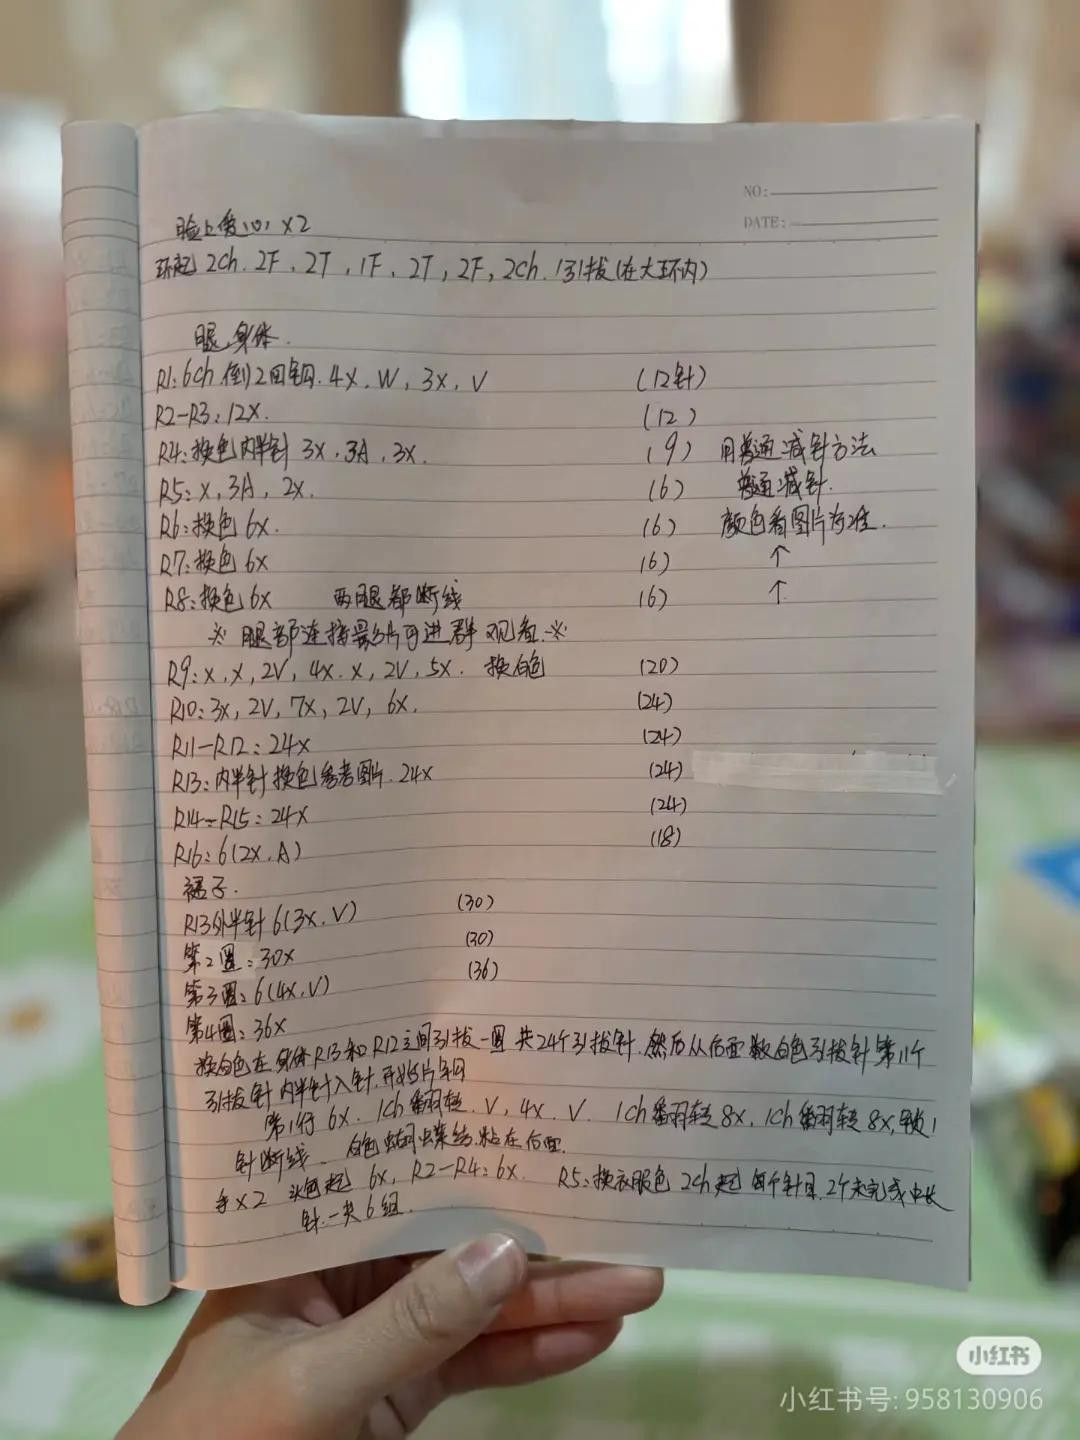 NO:
DATE:
脸上爱心 x2
环起 2ch. 2F、2T、1F、2T、2F、2ch. 1引拔(在大环内)
腿、身体.
R1: 6ch 倒2回钩. 4x、W、3x、V (12针)
R2-R3: 12x. (12)
R4: 换色内半针 3x、3A、3x. (9) 用普通减针方法
R5: x, 3A, 2x. (6) 普通减针.
R6: 换色 6x. (6) 颜色看图片为准.
R7: 换色 6x (6) ↑
R8: 换色 6x 两腿都断线 (6) ↑
※ 腿部连接影片可进群观看 ※
R9: x, x, 2V, 4x. x, 2V, 5x. 换白色 (20)
R10: 3x, 2V, 7x, 2V, 6x. (24)
R11-R12: 24x (24)
R13: 内半针换色参考图片. 24x (24)
R14-R15: 24x (24)
R16: 6(2x, A) (18)
裙子.
R13外半针 6(3x, V) (30)
第2圈: 30x (30)
第3圈: 6(4x, V) (36)
第4圈: 36x
换白色在身体R13和R12之间引拔一圈 共24个引拔针. 然后从后面数白色引拔针第11个
引拔针内半针入针. 开始片钩
第1行 6x. 1ch翻转. V, 4x. V. 1ch翻转 8x, 1ch翻转 8x, 锁1
针断线. 白色蝴蝶结粘在后面.
手x2 环起 6x, R2-R4: 6x. R5: 换衣服色 2ch起 每个针目. 2个未完成中长
针. 一共6组.
小红书
小红书号: 958130906